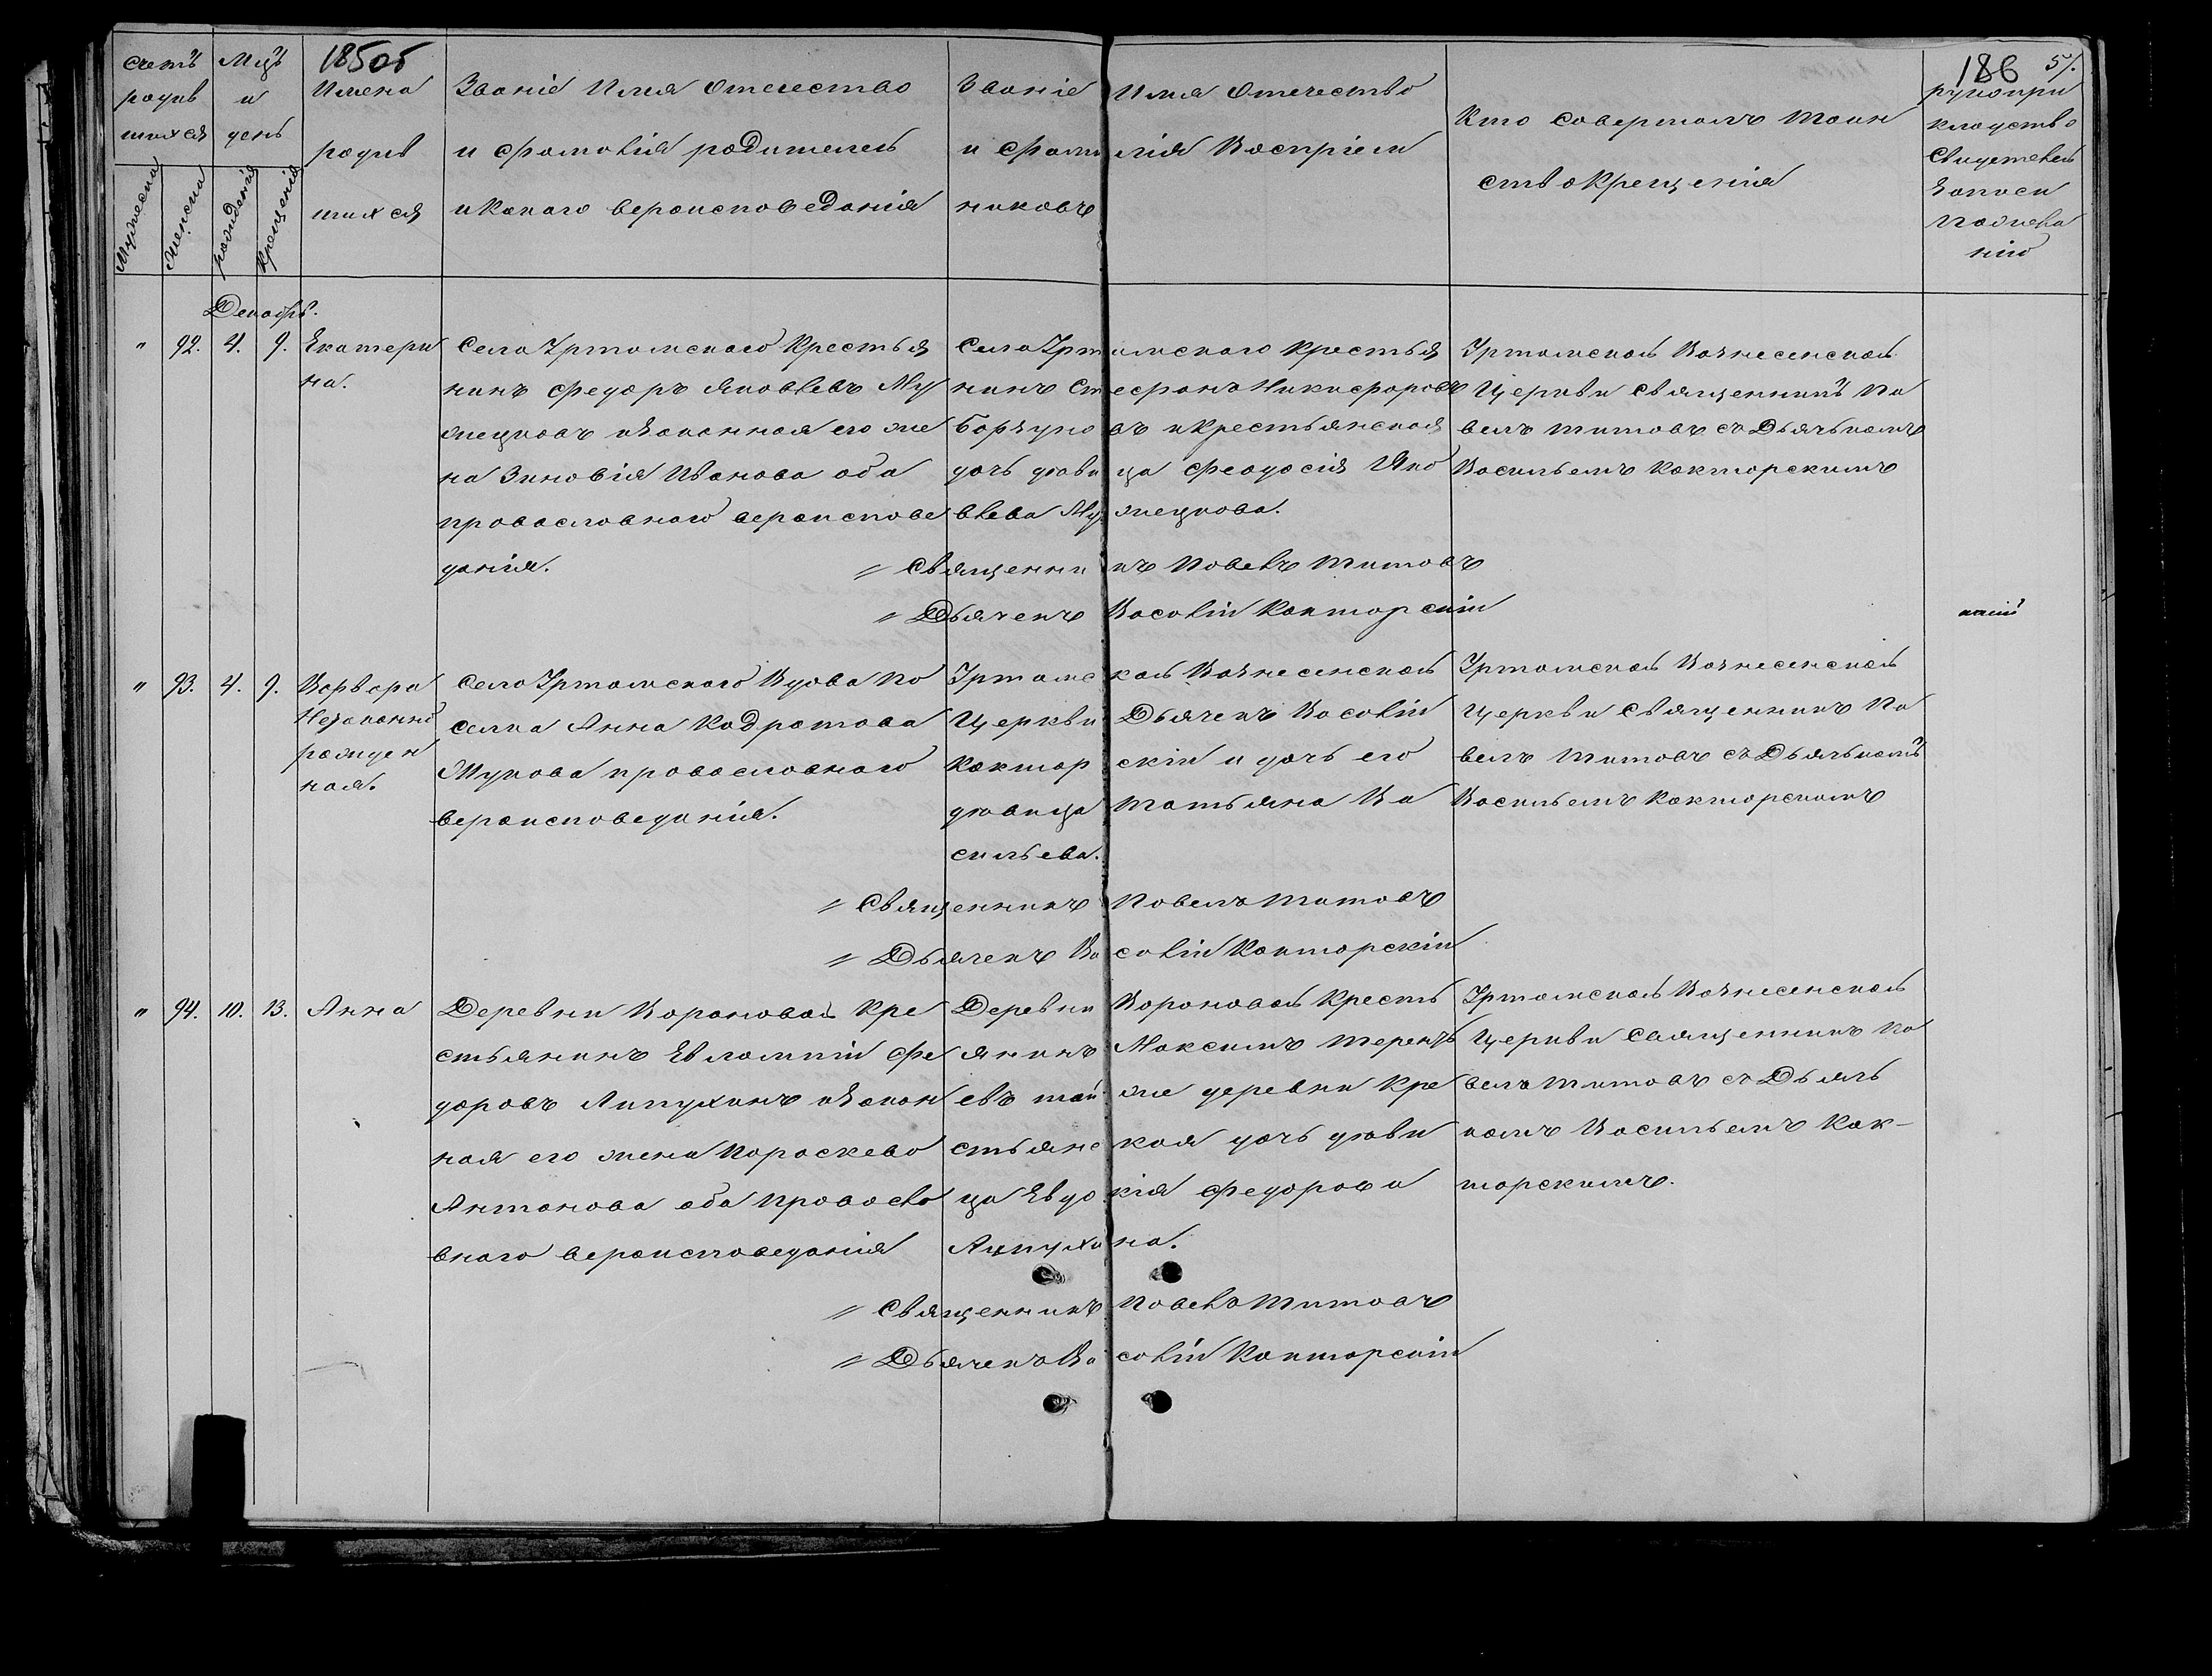 185об
186 51.
Счетъ родив шихся
Мужеска
Женска
Мцъ и день
рождения
крещения
Имена родив шихся
Званіе Имя Отечество
и Фамилия родителей
и какого вероисповедания
Званіе Имя Отечество
и Фамилия Восприем
никовъ
Кто совершалъ Таин
ство Крещения
рукопри
кладство
Свидетелей
Записи
по жела
нию
Декабрь.
" 92. 4. 9. Екатери
на.
Села Иртомского Крестья
нинъ Федоръ Яковлевъ Му
жецковъ и законная его же
на Зиновия Иванова оба
православного вероиспове
дания.
Села Иртомского Крестья
нинъ Стефанъ Никифоровъ
Борзуновъ и Крестьянская
дочь девица Феодосия Яко
влева Мужецкова.
Иртомской Вознесенской
Церкви Священникъ Па
велъ Титовъ съ Дьячкомъ
Васильемъ Кокторскимъ
" Священникъ Павелъ Титовъ
" Дьячекъ Василий Кокторский
" 93. 4. 9. Варвара
Незаконно
рожден
ная.
Села Иртомского Вдова По
селка Анна Кодратова
Жукова православного
вероисповедания.
Иртомской Вознесенской
Церкви Дьячекъ Василий
Кокторский и дочь его
девица Татьяна Ва
сильева.
Иртомской Вознесенской
Церкви Священникъ Па
велъ Титовъ съ Дьячкомъ
Васильемъ Кокторскимъ
" Священникъ Павелъ Титовъ
" Дьячекъ Василий Кокторский
" 94. 10. 13. Анна
Деревни Вороновой Кре
стьянинъ Евлампий Фе
доровъ Липухинъ и закон
ная его жена Параскева
Антонова оба Правосла
вного вероисповедания
Деревни Вороновой Кресть
янинъ Максимъ Терентъ
евъ той же деревни Кре
стьянская дочь деви
ца Евдокия Федорова
Липухина.
Иртомской Вознесенской
Церкви Священникъ Па
велъ Титовъ съ Дьяч
комъ Васильемъ Кок-
торскимъ.
" Священникъ Павелъ Титовъ
" Дьячекъ Василий Кокторский